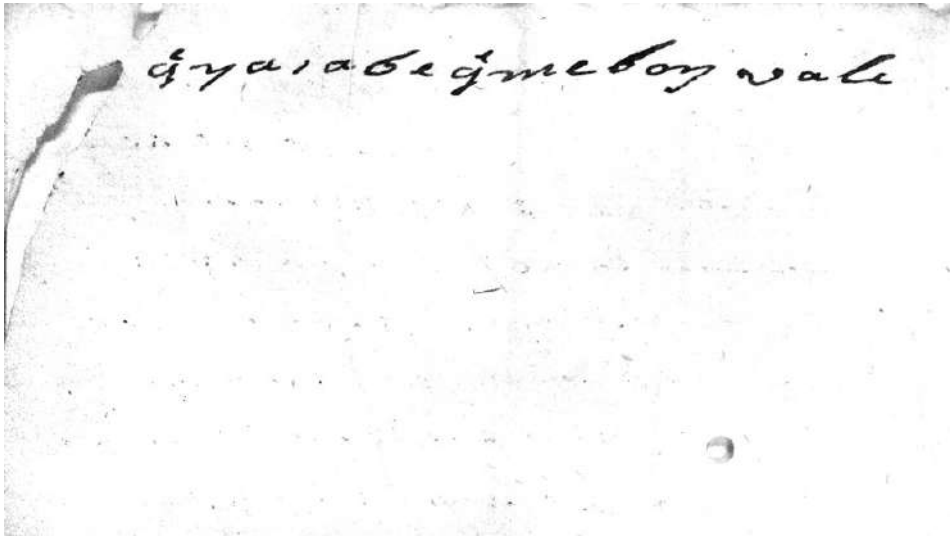 qᵉ ya sabe qᵉ me boy vale